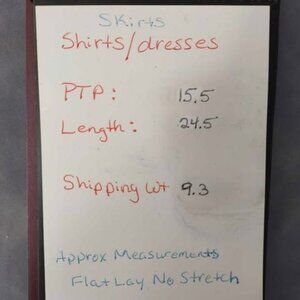 Skirts
Shirts/dresses
PTP: 15.5
Length: 24.5
Shipping wt 9.3
Approx Measurements
Flat Lay No Stretch